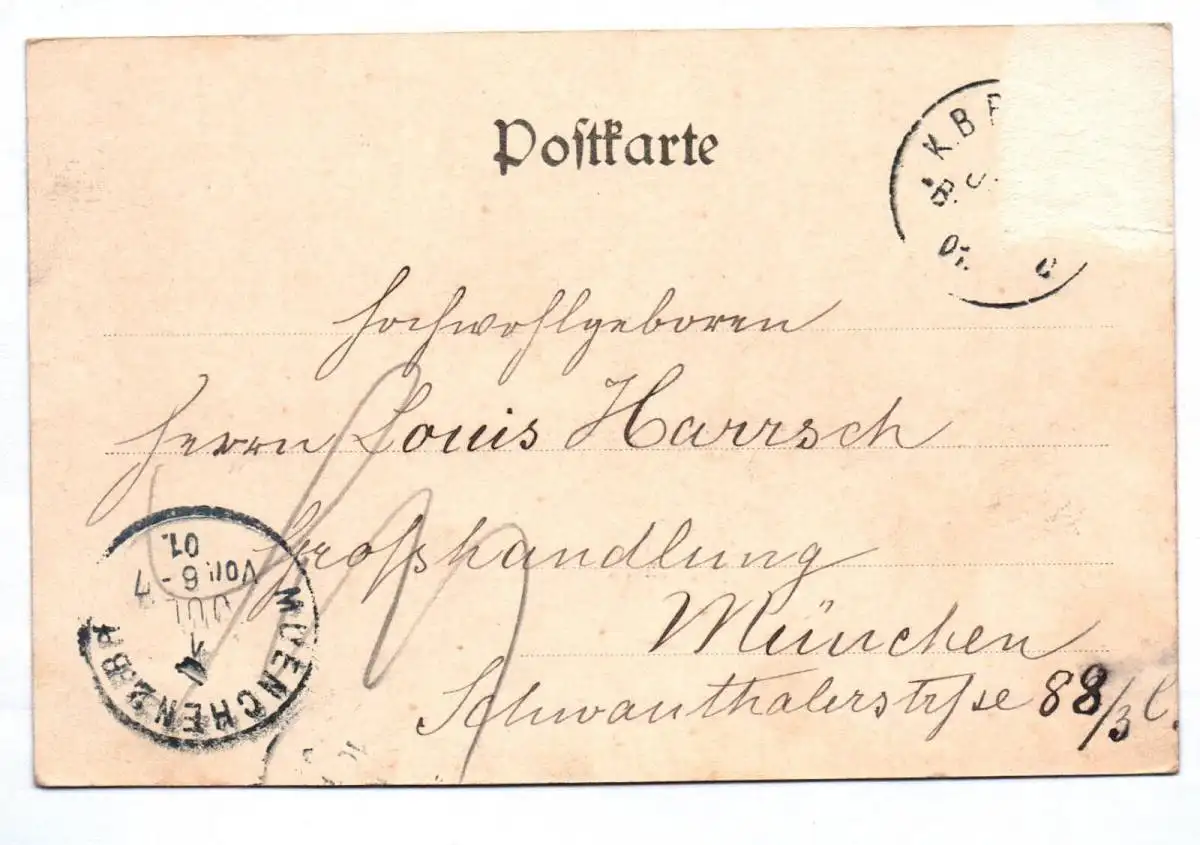 Postkarte
K.B.
01.
Hochwohlgeboren
Herrn Louis Harrsch
Großhandlung
München
Schwanthalerstrße 88/3 l.
MUENCHEN 2.B.P.
JUL
Vor. 6-7
01.